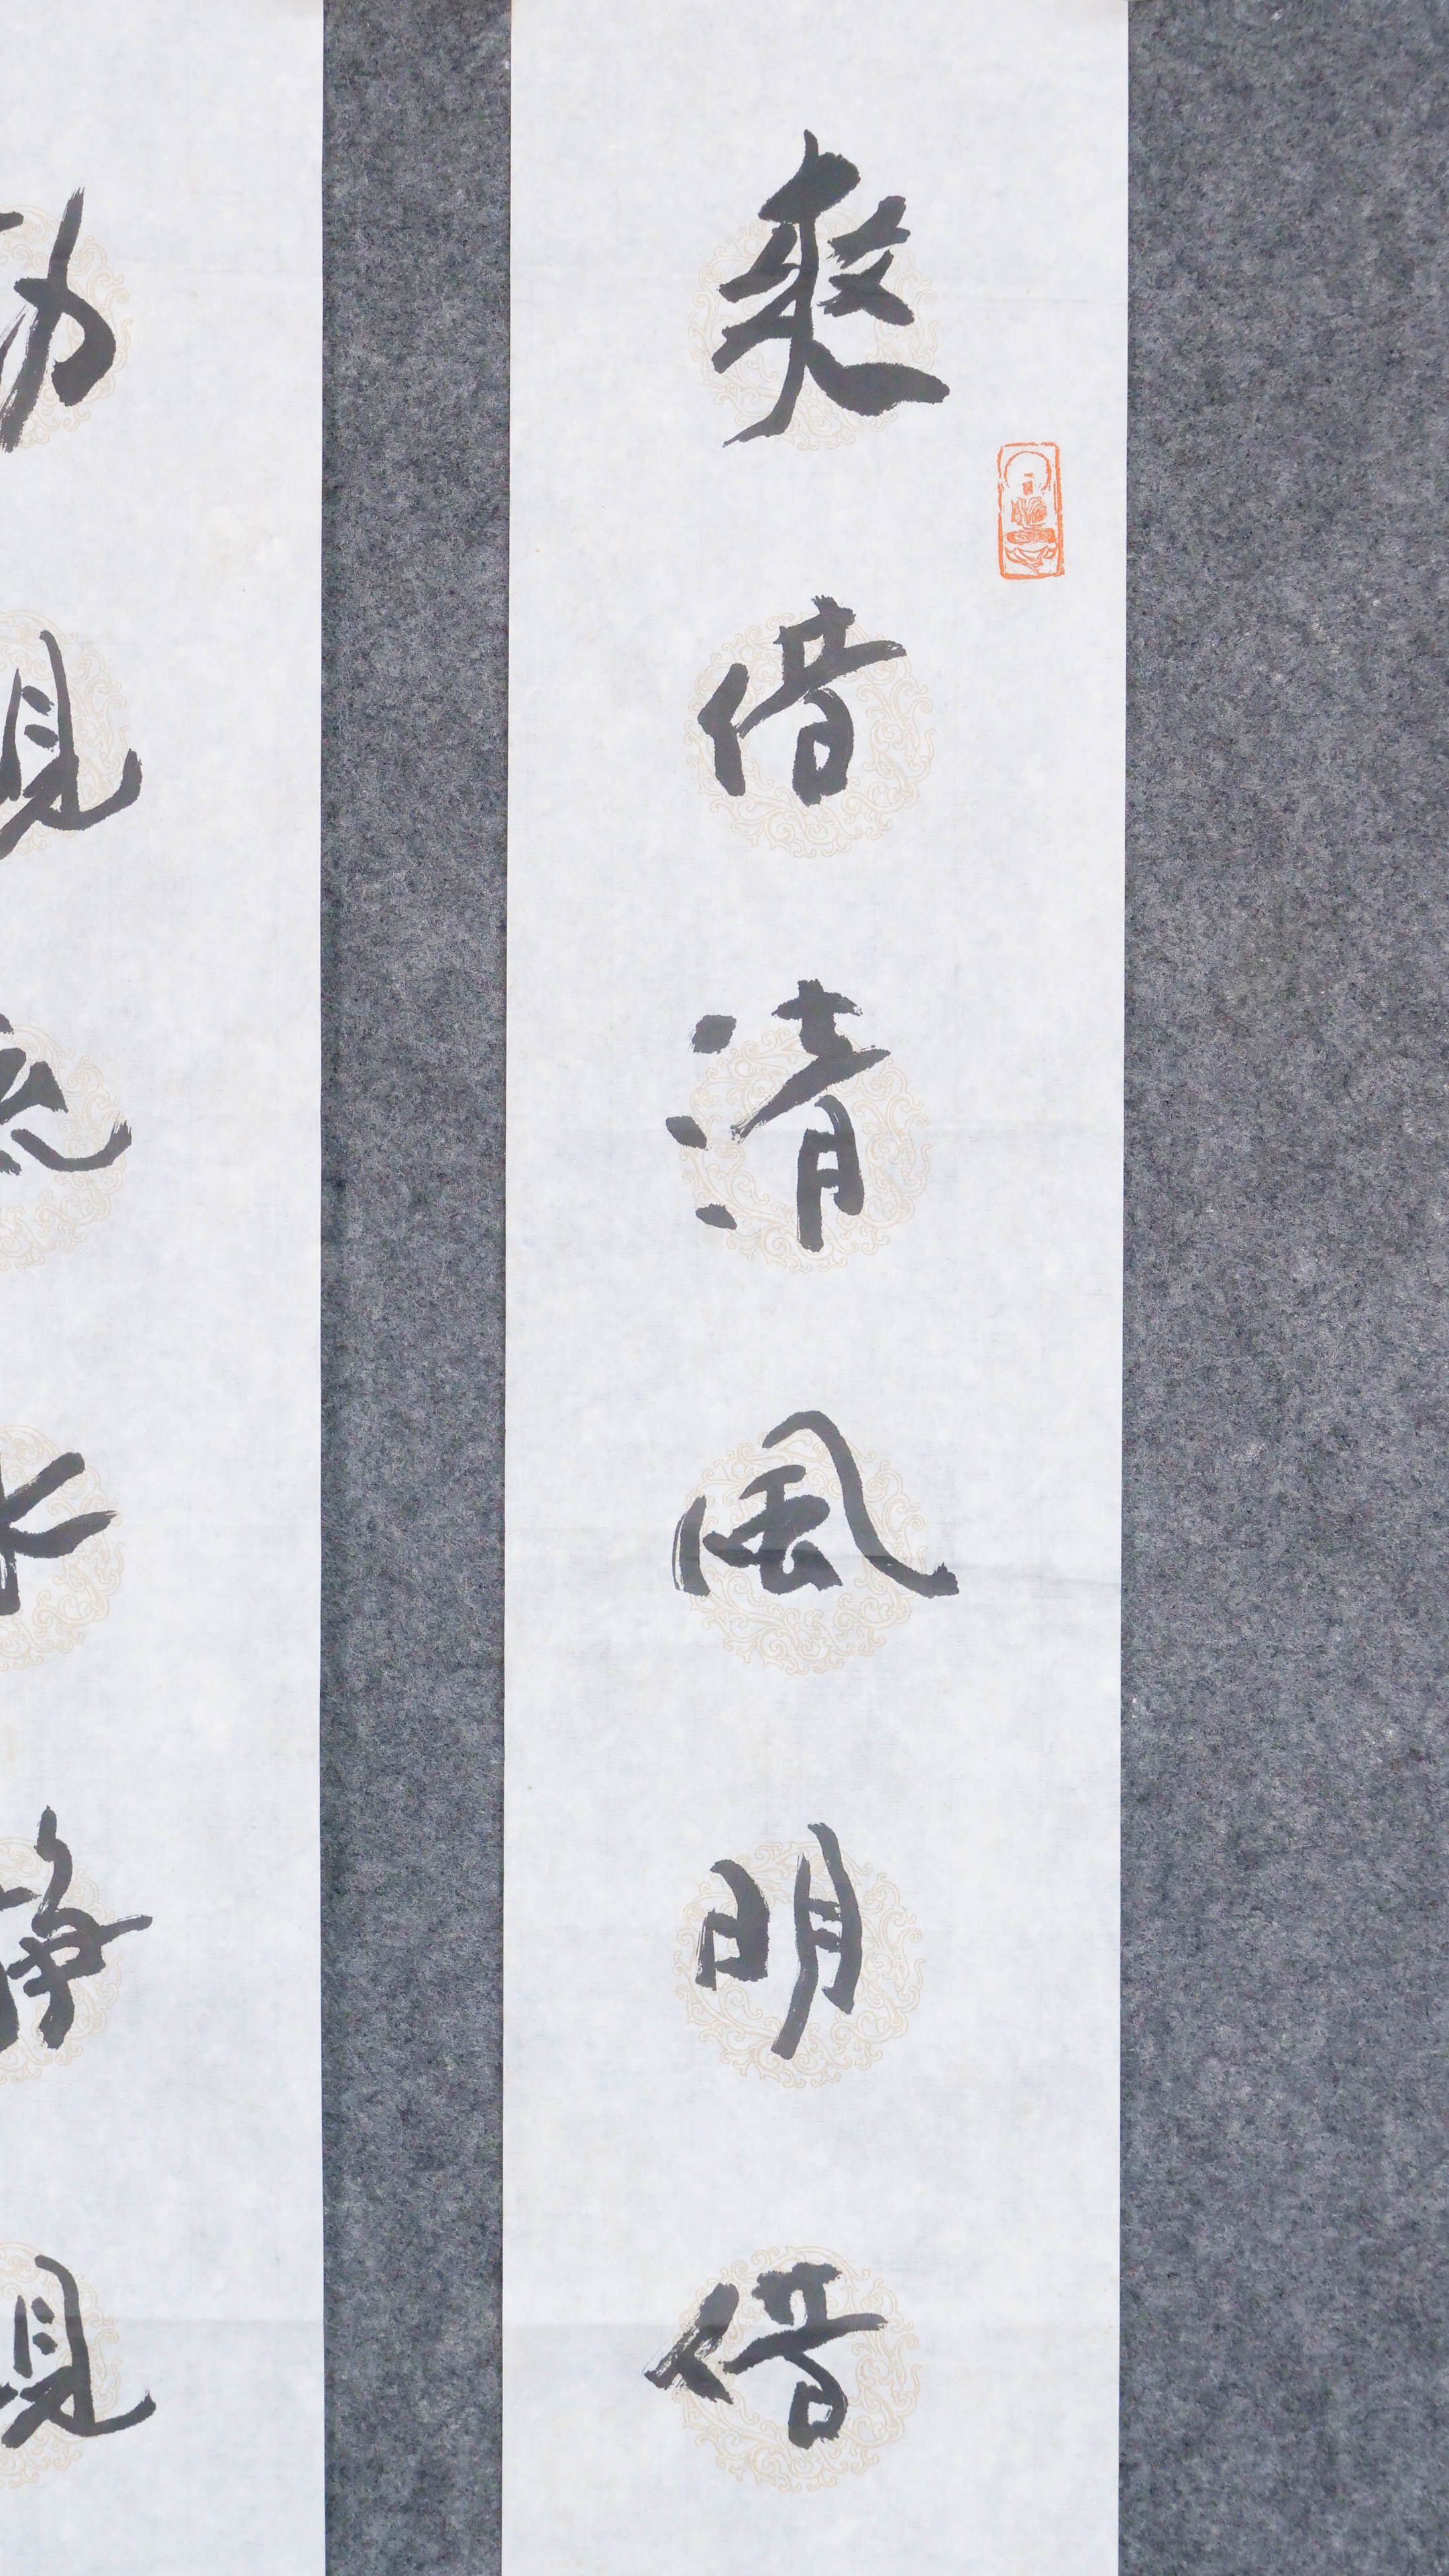 爽借清風明借
動觀流水靜觀